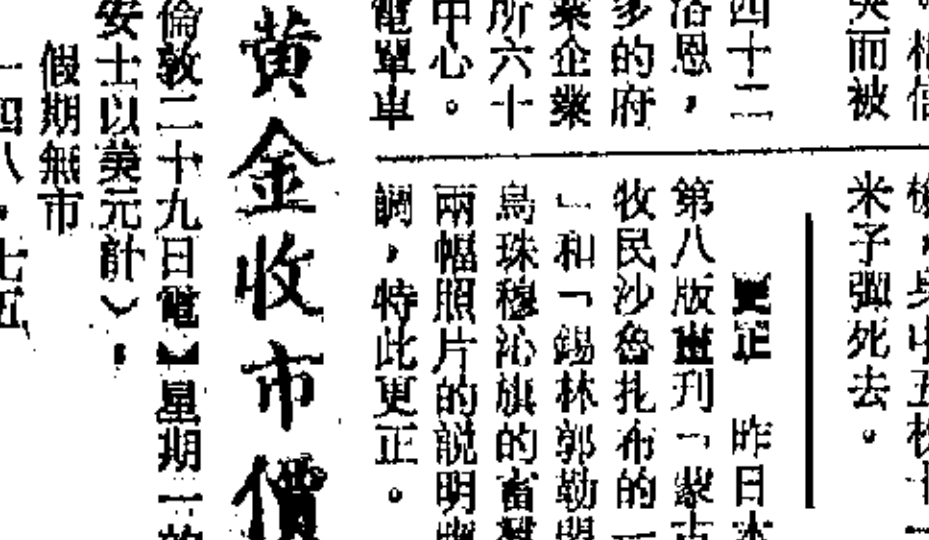 而被
米子彈死去。
四十二
洛恩，
多的府
業企業
所六十
中心。
電單車
更正　昨日本
第八版畫刊「蒙古
牧民沙魯扎布的一
」和「錫林郭勒盟
烏珠穆沁旗的畜羣
兩幅照片的說明應
調，特此更正。
黃金收市價
倫敦二十九日電】星期一的
安士以美元計）：
假期無市
一四八．七五